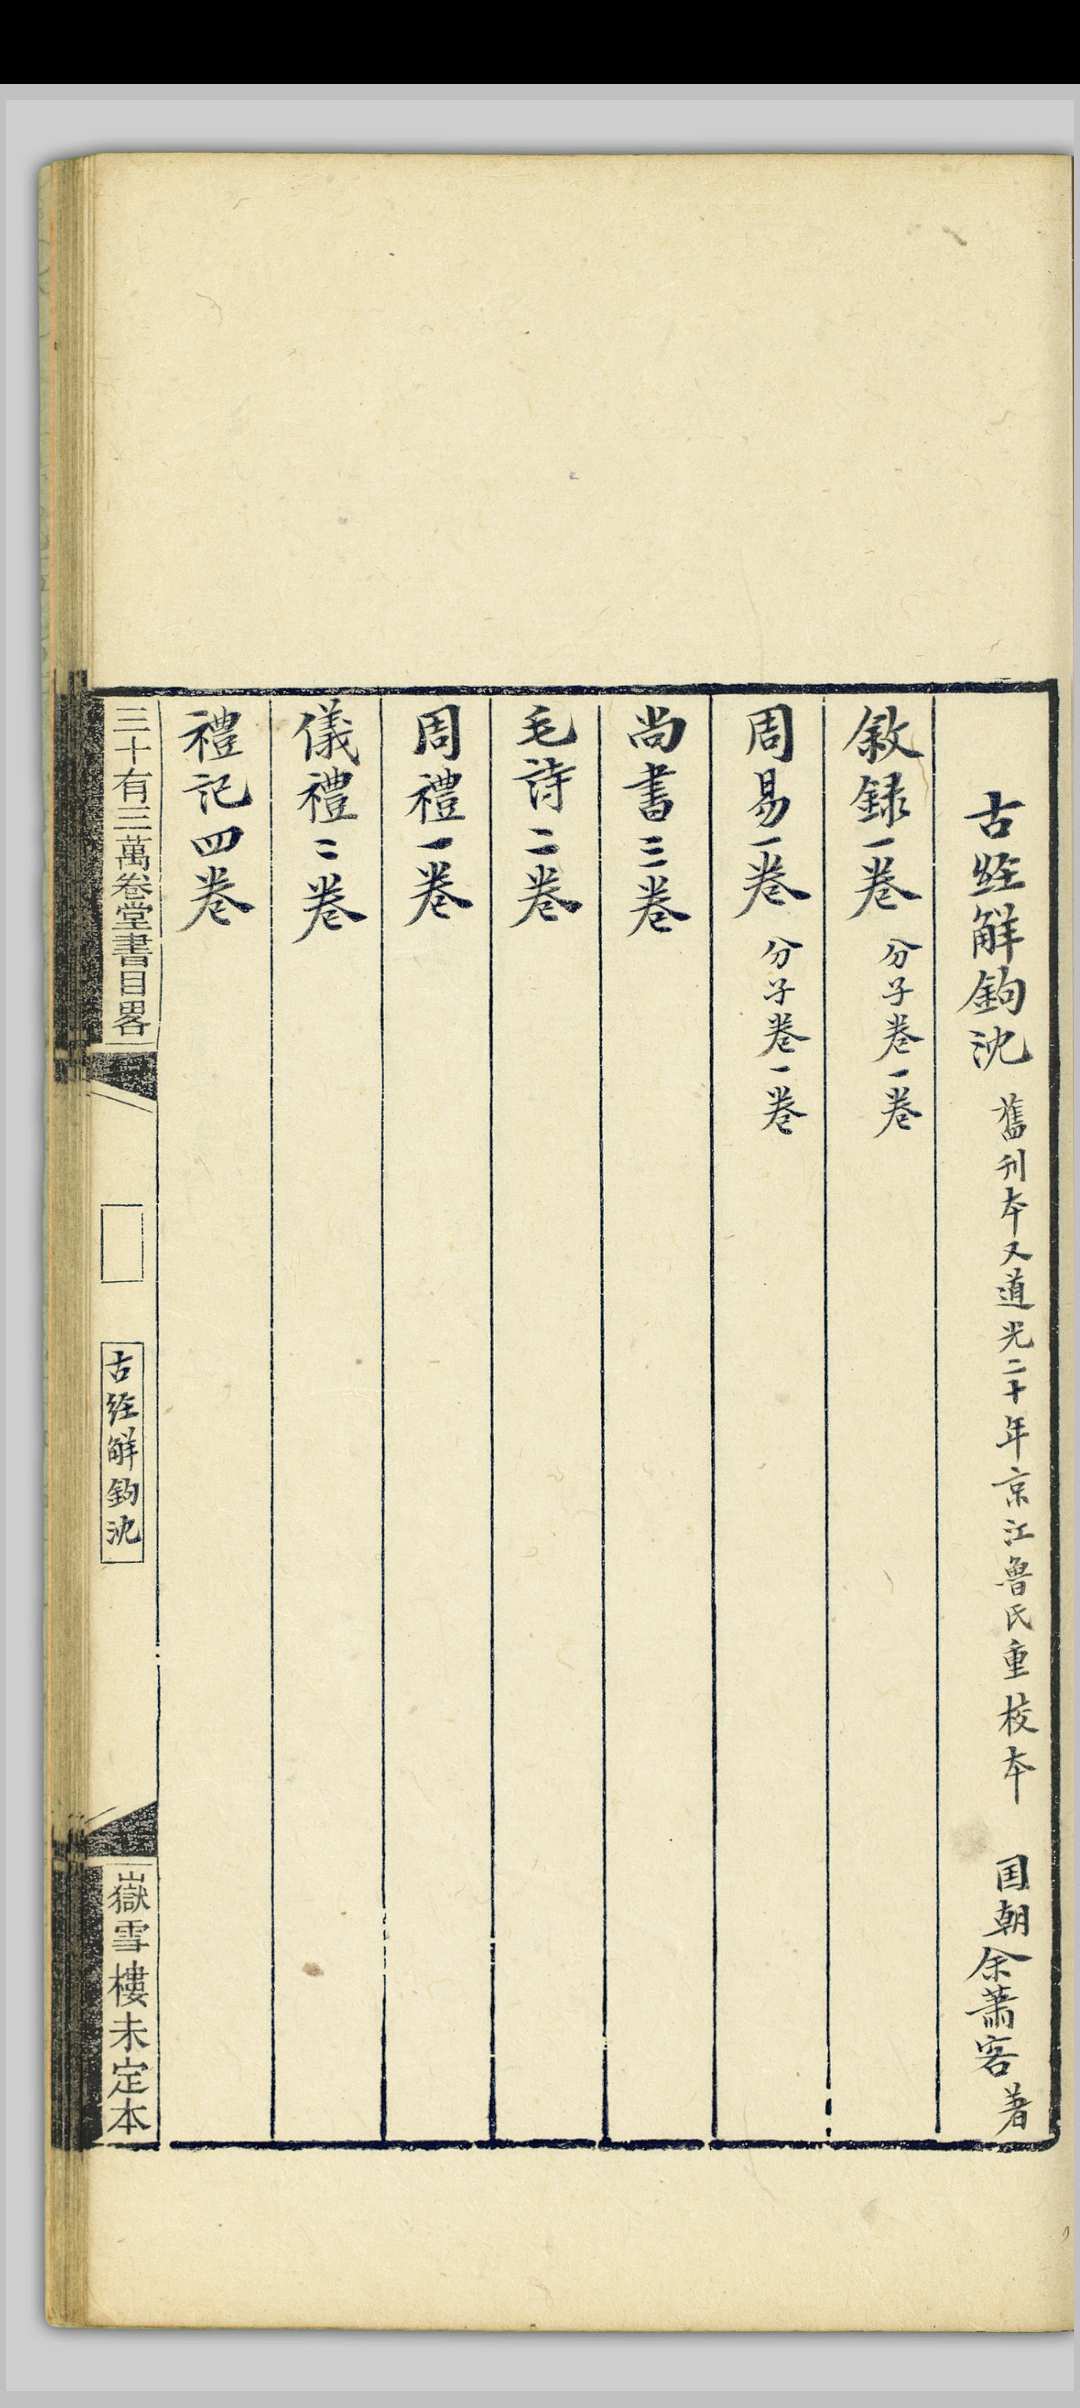 古經解鉤沈 舊刊本又道光二十年京江魯氏重校本 国朝余蕭客著
敘録一卷 分子卷一卷
周易一卷 分子卷一卷
尚書三卷
毛詩二卷
周禮一卷
儀禮二卷
禮記四卷
三十有三萬卷堂書目畧
古經解鉤沈
嶽雪樓未定本